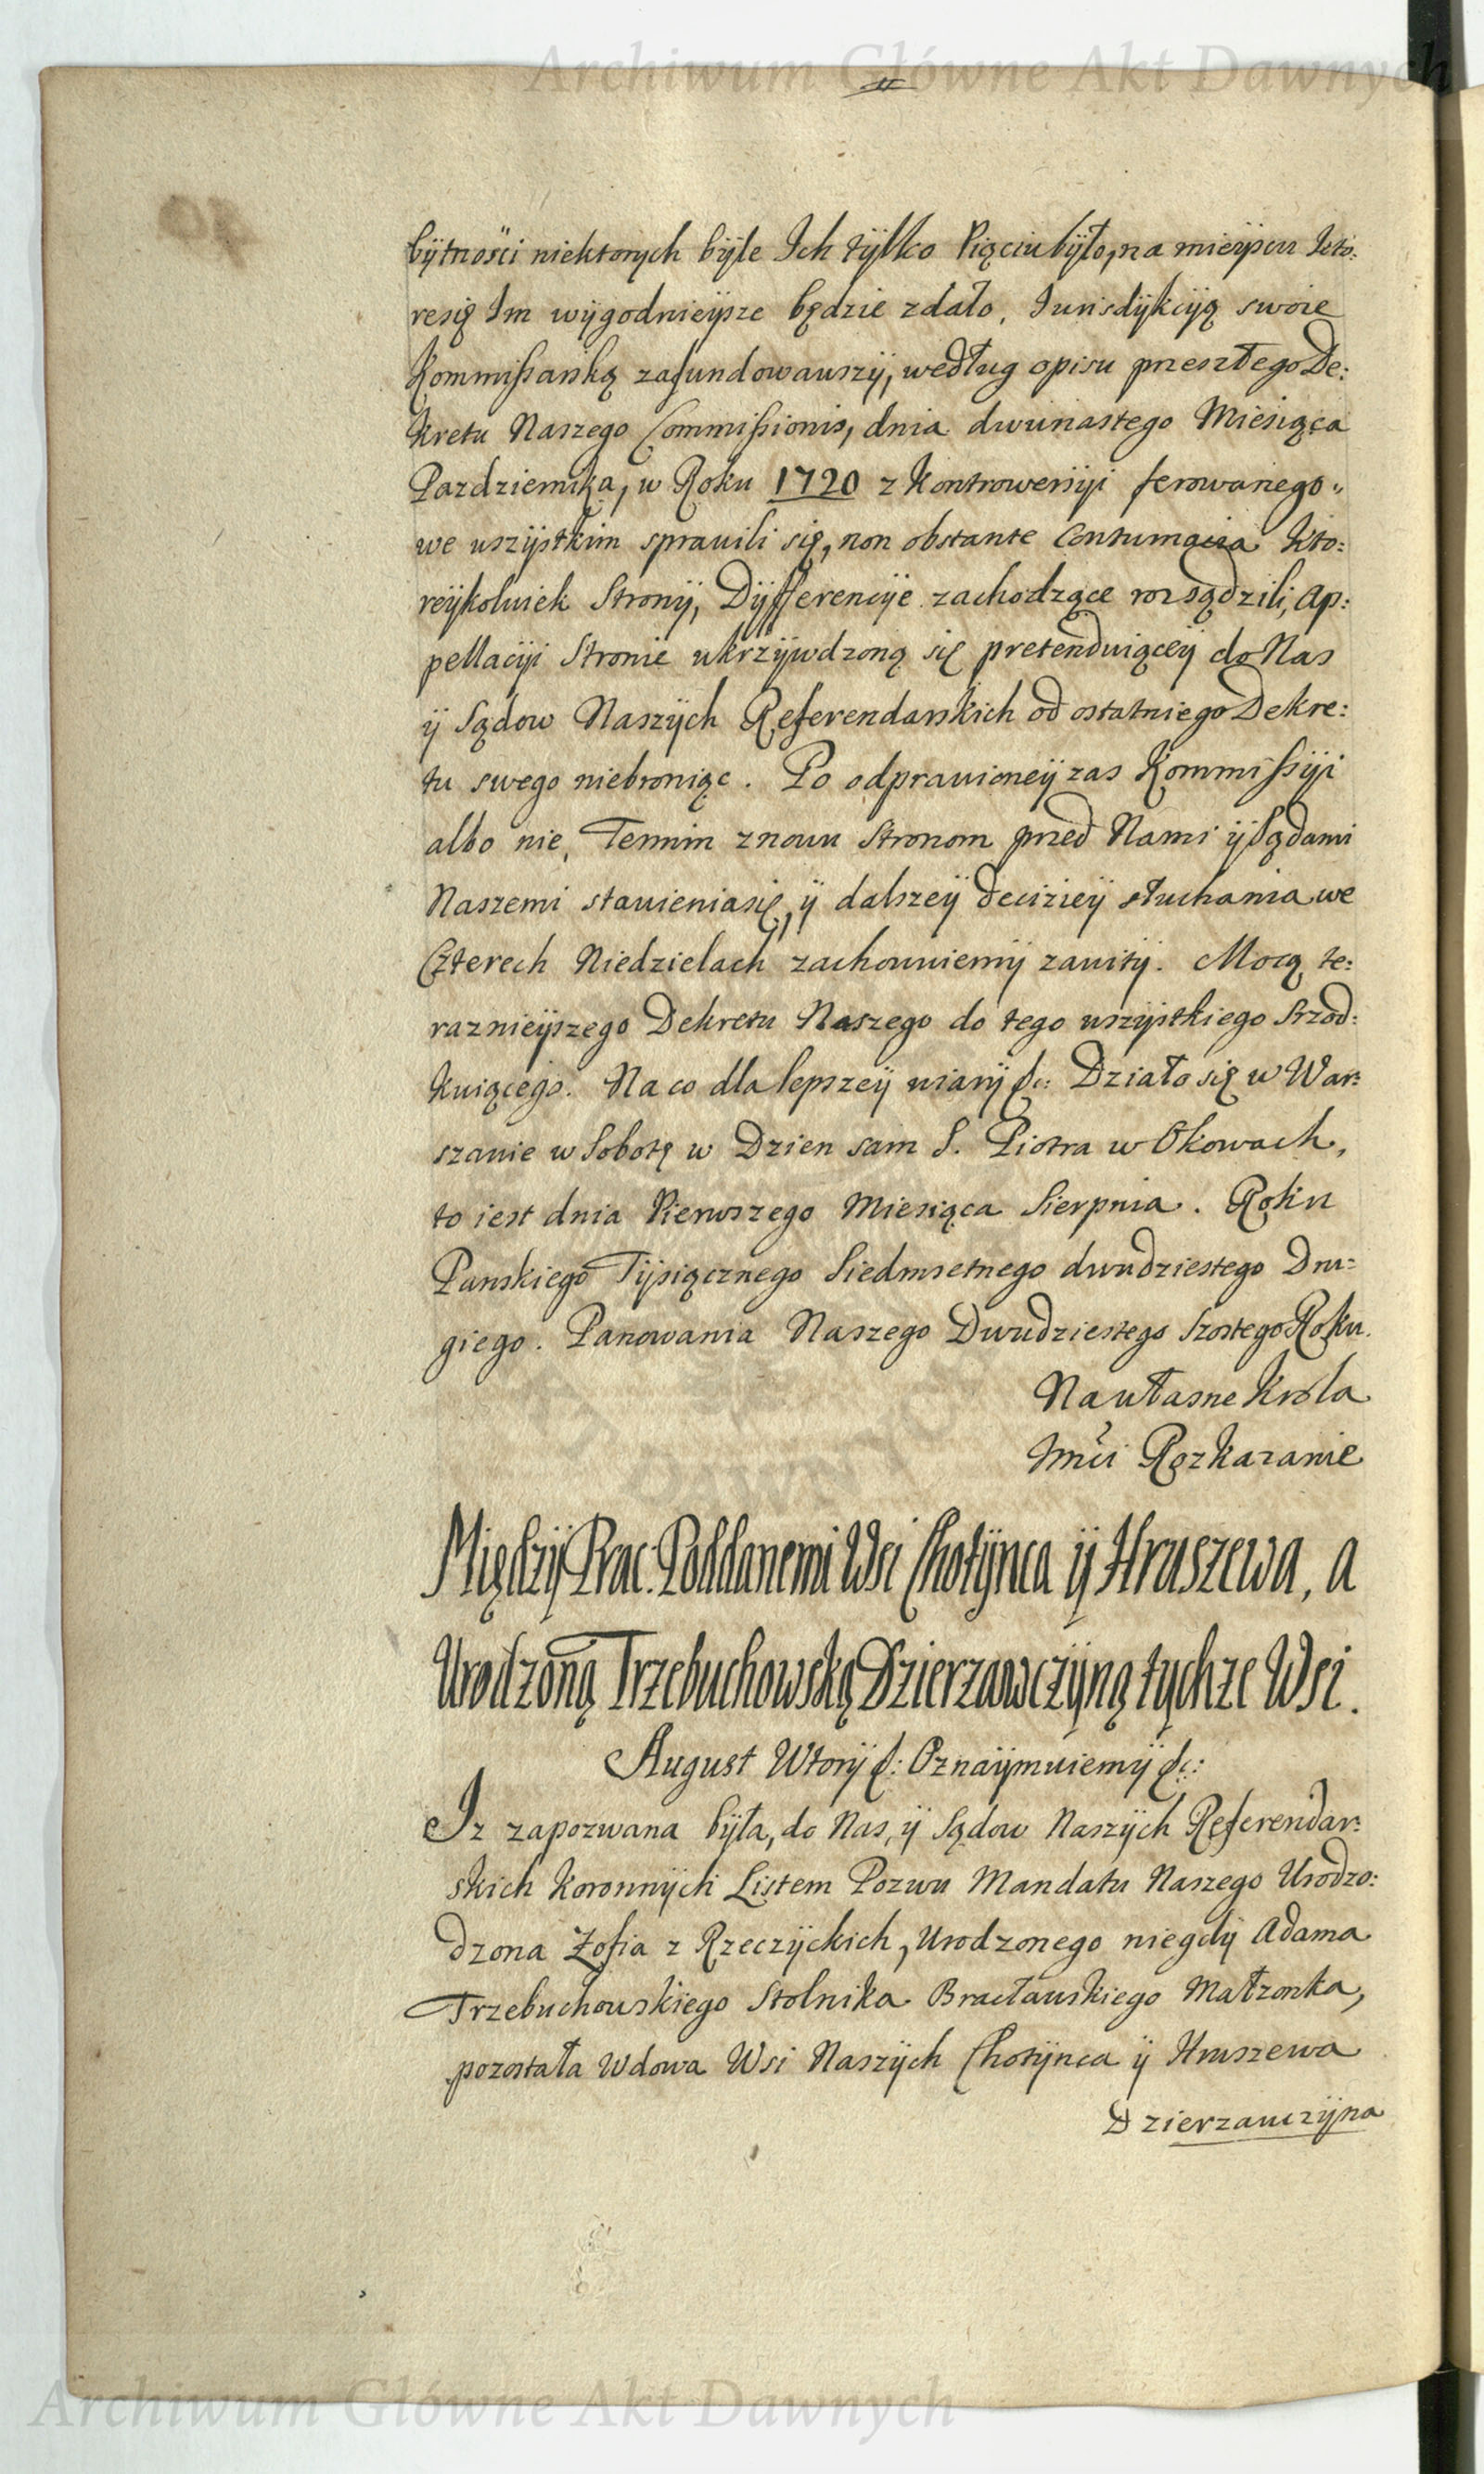 Archiwum Główne Akt Dawnych
bÿtności niektorych bÿle Ich tÿlko Pięciu bÿło, na mieÿscu kto:
resię Im wÿgodnieÿsze będzie zdało. Iurisdÿkcÿą swoie
Kommißarską zafundowawszÿ, według opisu przeszłego De:
kretu Naszego Commißionis, dnia dwunastego Miesiąca
Pazdziernika, w Roku 1720 z Kontrowersÿi ferowanego,
we wszÿstkim sprawili się, non obstante Contumacia kto:
reÿkolwiek Stronÿ, Dÿfferencÿe zachodzące rozsądzili, Ap:
pellacÿi Stronie ukrzÿwdzoną się pretenduiąceÿ do Nas
ÿ Sądow Naszÿch Referendarskich od ostatniego Dekre:
tu swego niebroniąc. Po odprawioneÿ zas Kommißÿi
albo nie, Termin znowu Stronom przed Nami ÿ Sądami
Naszemi stawieniasię, ÿ dalszeÿ decizieÿ słuchania we
Czterech Niedzielach zachowuiemÿ zawitÿ. Mocą te:
raznieÿszego Dekretu Naszego do tego wszÿstkiego Srzod:
kuiącego. Na co dla lepszeÿ wiarÿ &c: Działo się w War:
szawie w Sobotę w Dzien sam S. Piotra w Okowach,
to iest dnia Pierwszego Miesiąca Sierpnia. Roku
Panskiego Tÿsiącznego Siedmsetnego dwudziestego Dru:
giego. Panowania Naszego Dwudziestego Szostego Roku.
Na własne Krola
Jmći Rozkazanie
Międzÿ Prac: Poddanemi Wsi Chotÿnca ÿ Hruszewa, a
Urodzoną Trzebuchowską Dzierzawczÿną tychze Wsi.
August Wtorÿ &: Oznaÿmuiemÿ &c:
Iz zapozwana bÿła, do Nas, ÿ Sądow Naszÿch Referendar:
skich Koronnÿch Listem Pozwu Mandatu Naszego Urodzo:
dzona Zofia z Rzeczÿckich, Urodzonego niegdÿ Adama
Trzebuchowskiego Stolnika Bracławskiego Małzonka,
pozostała Wdowa Wsi Naszÿch Chotÿnca ÿ Hruszewa
Dzierzawczÿna
Archiwum Główne Akt Dawnych